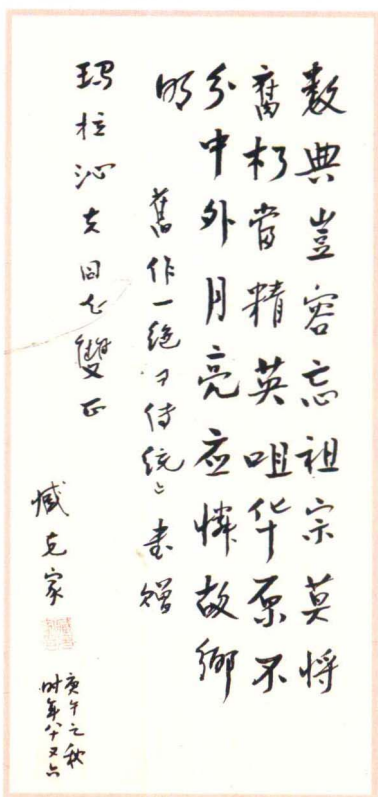 數典豈容忘祖宗莫將
腐朽當精英咀华原不
分中外月亮应憐故鄉
明
舊作一绝『传统』书赠
玛拉沁夫同志雙正
臧克家
庚午之秋
时年八十又六